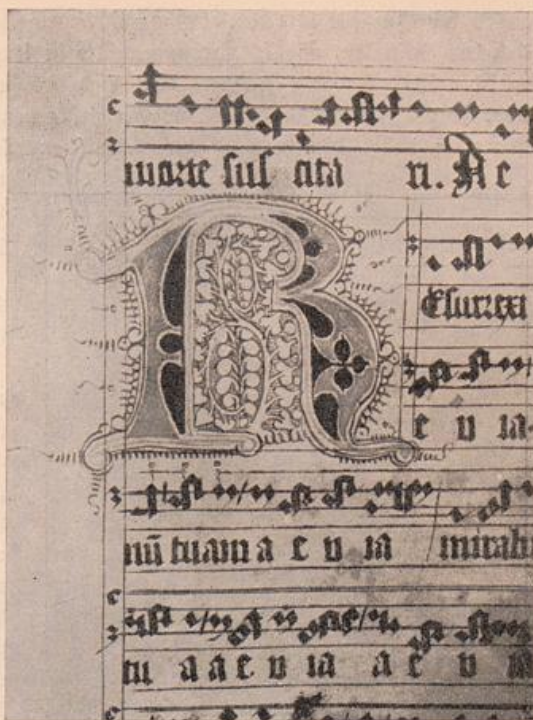 morte sus cita ri. A e
R
Esurrexi
e u ia.
nū tuam a e u ia mirabi
tu a a e u ia a e u ia